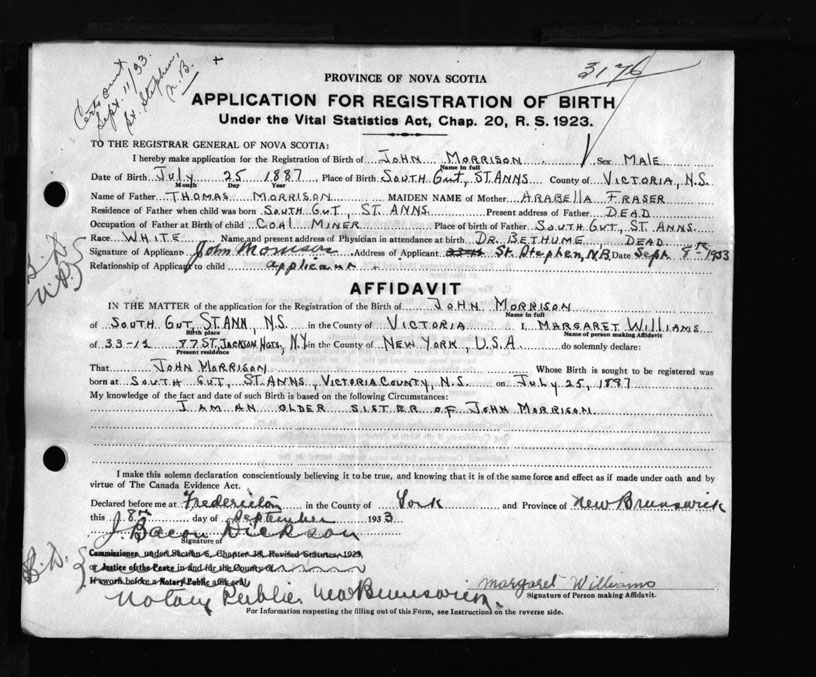 Cert. out
Sept. 11/33.
St. Stephen,
N.B.
3176
PROVINCE OF NOVA SCOTIA
APPLICATION FOR REGISTRATION OF BIRTH
Under the Vital Statistics Act, Chap. 20, R. S. 1923.
TO THE REGISTRAR GENERAL OF NOVA SCOTIA:
I hereby make application for the Registration of Birth of JOHN MORRISON Sex MALE
Name in full
Date of Birth July 25 1887 Place of Birth SOUTH GUT, ST. ANNS County of VICTORIA, N.S.
Month Day Year
Name of Father THOMAS MORRISON MAIDEN NAME of Mother ARABELLA FRASER
Residence of Father when child was born SOUTH GUT, ST. ANNS Present address of Father DEAD
Occupation of Father at Birth of child COAL MINER Place of birth of Father SOUTH GUT, ST ANNS
Race WHITE Name and present address of Physician in attendance at birth DR. BETHUME, DEAD
Signature of Applicant John Morrison Address of Applicant St. Stephen, N.B. Date Sept. 8th 1933
Relationship of Applicant to child applicant
AFFIDAVIT
IN THE MATTER of the application for the Registration of the Birth of JOHN MORRISON
Name in full
of SOUTH GUT, ST. ANN, N.S. in the County of VICTORIA I, MARGARET WILLIAMS
Birth place Name of person making Affidavit
of 33-12 87 ST. JACKSON HGTS, N.Y. in the County of NEW YORK, U.S.A. do solemnly declare:
Present residence
That JOHN MORRISON Whose Birth is sought to be registered was
born at SOUTH GUT, ST. ANNS, VICTORIA COUNTY, N.S. on July 25, 1887
My knowledge of the fact and date of such Birth is based on the following Circumstances:
I AM AN OLDER SISTER OF JOHN MORRISON
I make this solemn declaration conscientiously believing it to be true, and knowing that it is of the same force and effect as if made under oath and by
virtue of The Canada Evidence Act.
Declared before me at Fredericton in the County of York and Province of New Brunswick
this 8th day of September 1933
J Bacon Dickson
Signature of
Commissioner under Section 6, Chapter 38, Revised Statutes, 1923,
or Justice of the Peace in and for the County of
If sworn before a Notary Public affix seal
Notary Public New Brunswick.
Margaret Williams
Signature of Person making Affidavit.
For Information respecting the filling out of this Form, see Instructions on the reverse side.